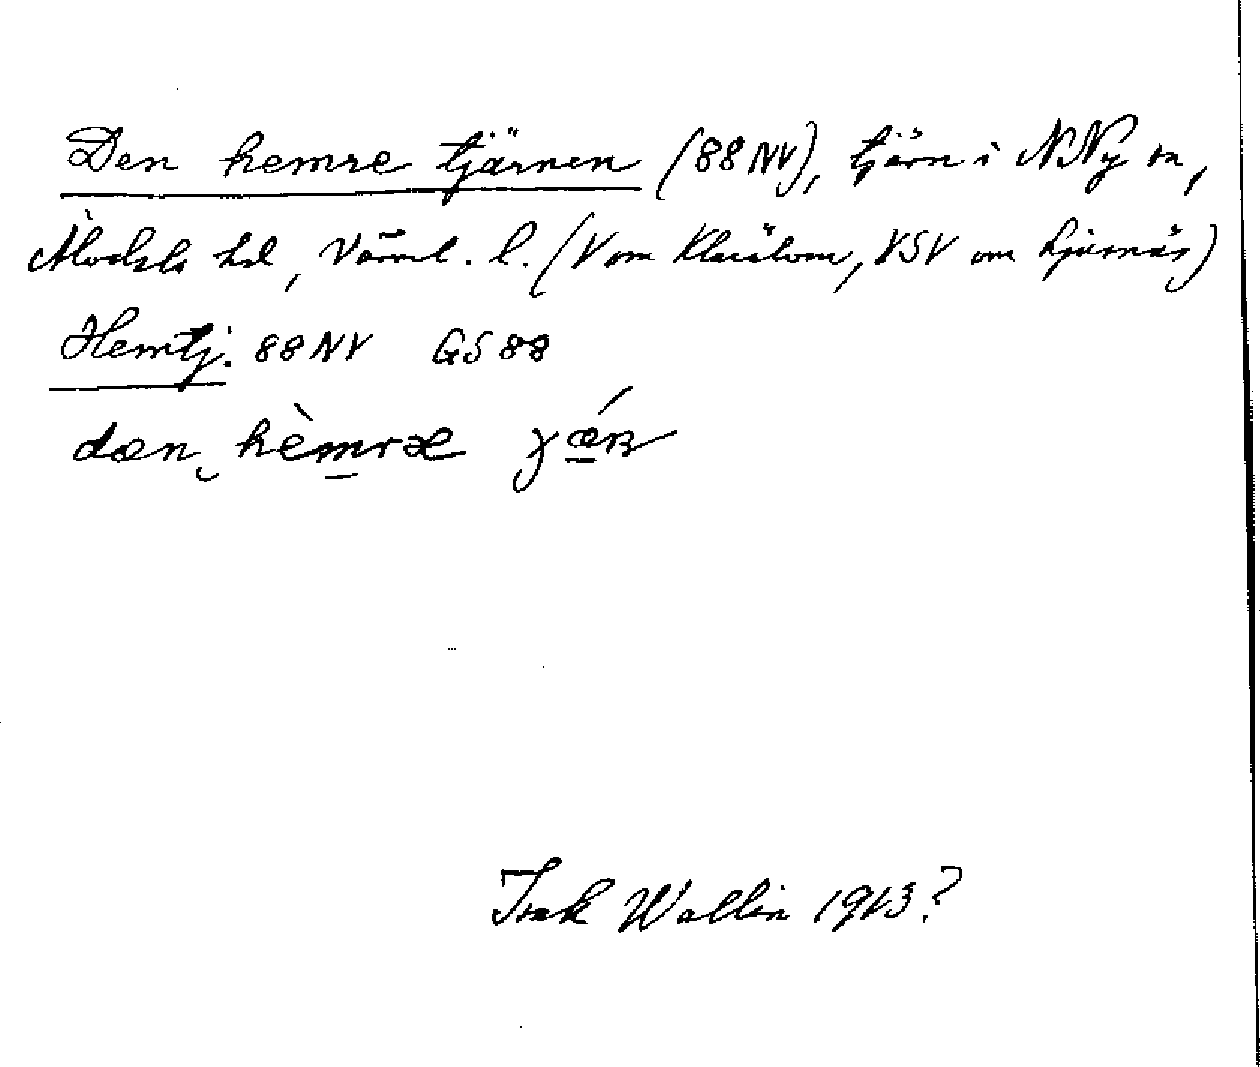 Den hemre tjärnen (88 NV), tjärn i N Ny sn,
Älvdals hd, Värml. l. (V om Klarälven, VSV om Ljusnäs)
Hemtj. 88 NV GS 88
dæn hèmræ
Isak Wallin 1913?